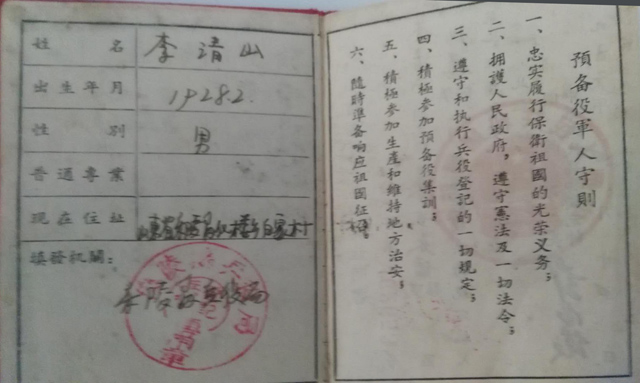 姓名 李清山
出生年月 1928.2.
性别 男
普通專業
现在住址
填發机關：
预备役軍人守則
一、忠实履行保衛祖國的光荣义务；
二、拥護人民政府，遵守憲法及一切法令；
三、遵守和执行兵役登記的一切規定；
四、積極参加预备役集訓；
五、積極参加生產和維持地方治安；
六、隨時準备响应祖國征召。